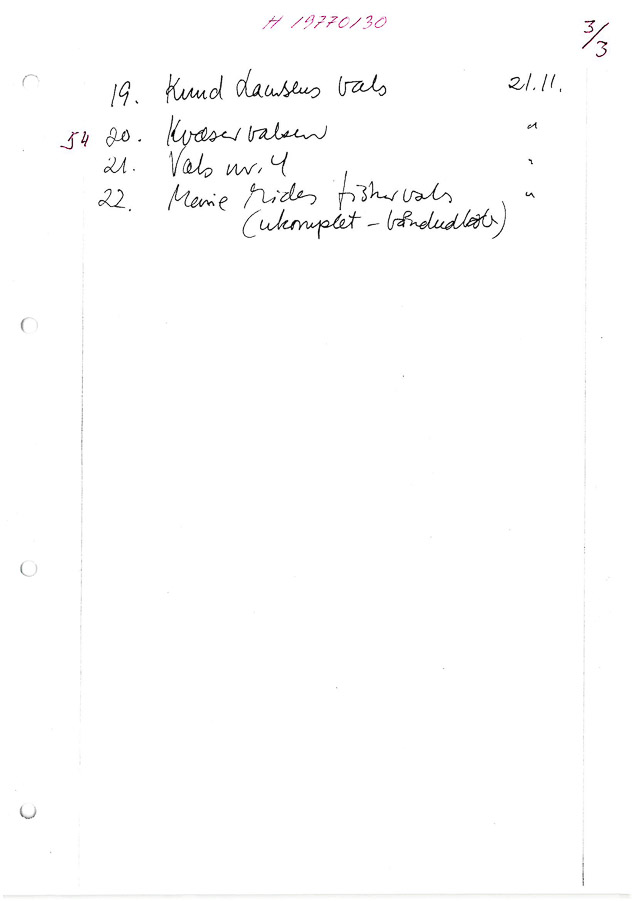 H 19770130
3/3
19. Knud Lausens Vals 21.11.
54 20. Kvæservalsen "
21. Vals nr. 4 "
22. fiskervals "
(ukomplet - båndudløb)